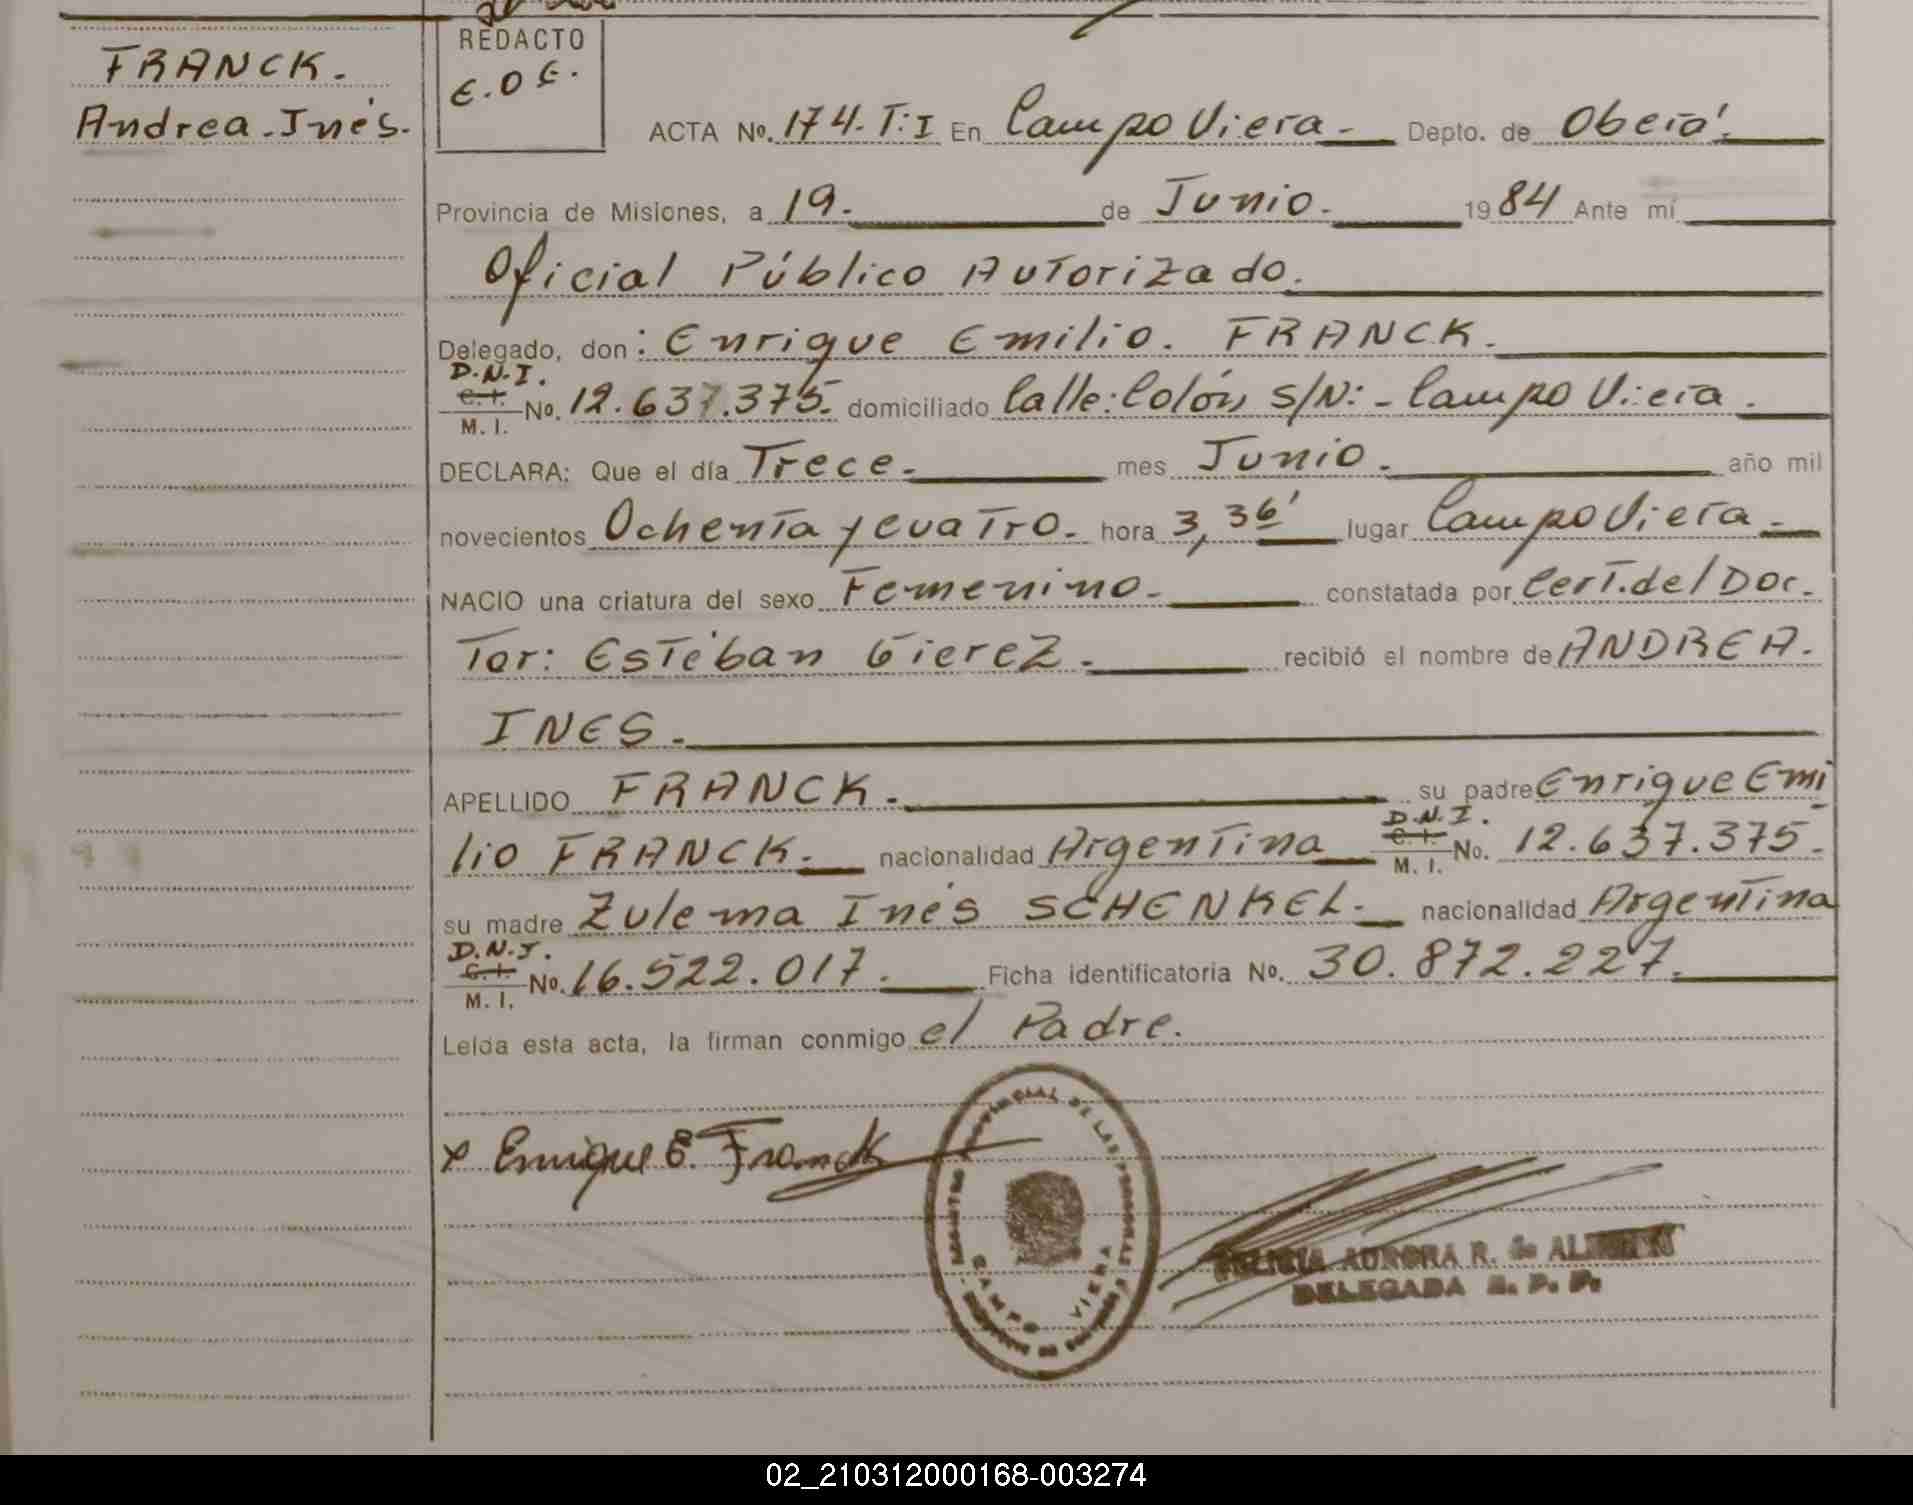 FRANCK.
Andrea.Inés.
REDACTO
E.O.E.
ACTA No. 174.T:I En Campo Viera.- Depto. de Oberá.
Provincia de Misiones, a 19. de Junio. 1984 Ante mí
Oficial Público Autorizado.
Delegado, don: Enrique Emilio. FRANCK.
D.N.I.
C.I.
M. I. No. 12.637.375. domiciliado Calle: Colón, S/N: - Campo Viera.
DECLARA: Que el día Trece. mes Junio. año mil
novecientos Ochenta y cuatro. hora 3,36' lugar Campo Viera.
NACIO una criatura del sexo Femenino. constatada por Cert. del Doc.
Tor: Estéban Gierez. recibió el nombre de ANDREA.
INES.
APELLIDO FRANCK. su padre Enrique Emi
lio FRANCK. nacionalidad Argentina D.N.I. C.I. M. I. No. 12.637.375.
su madre Zulema Inés SCHENKEL. nacionalidad Argentina
D.N.I.
C.I.
M. I. No. 16.522.017. Ficha identificatoria No. 30.872.227.
Leída esta acta, la firman conmigo el Padre.
x Enrique E. Franck
PROVINCIAL DE LAS PERSONAS
CAMPO VIERA
FELICIA AURORA R. de
DELEGADA R. P. P.
02_210312000168-003274